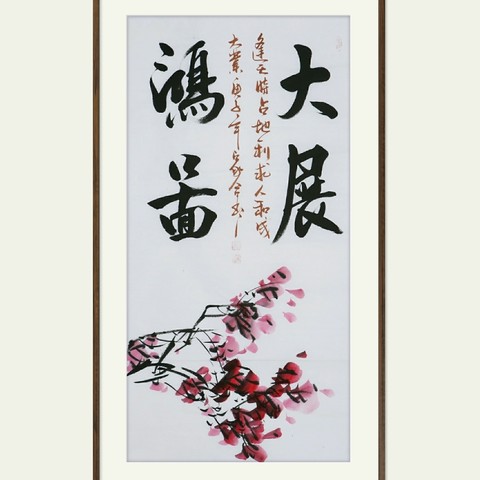 大展
鸿图
逢天時占地利求人和成
大業庚子年